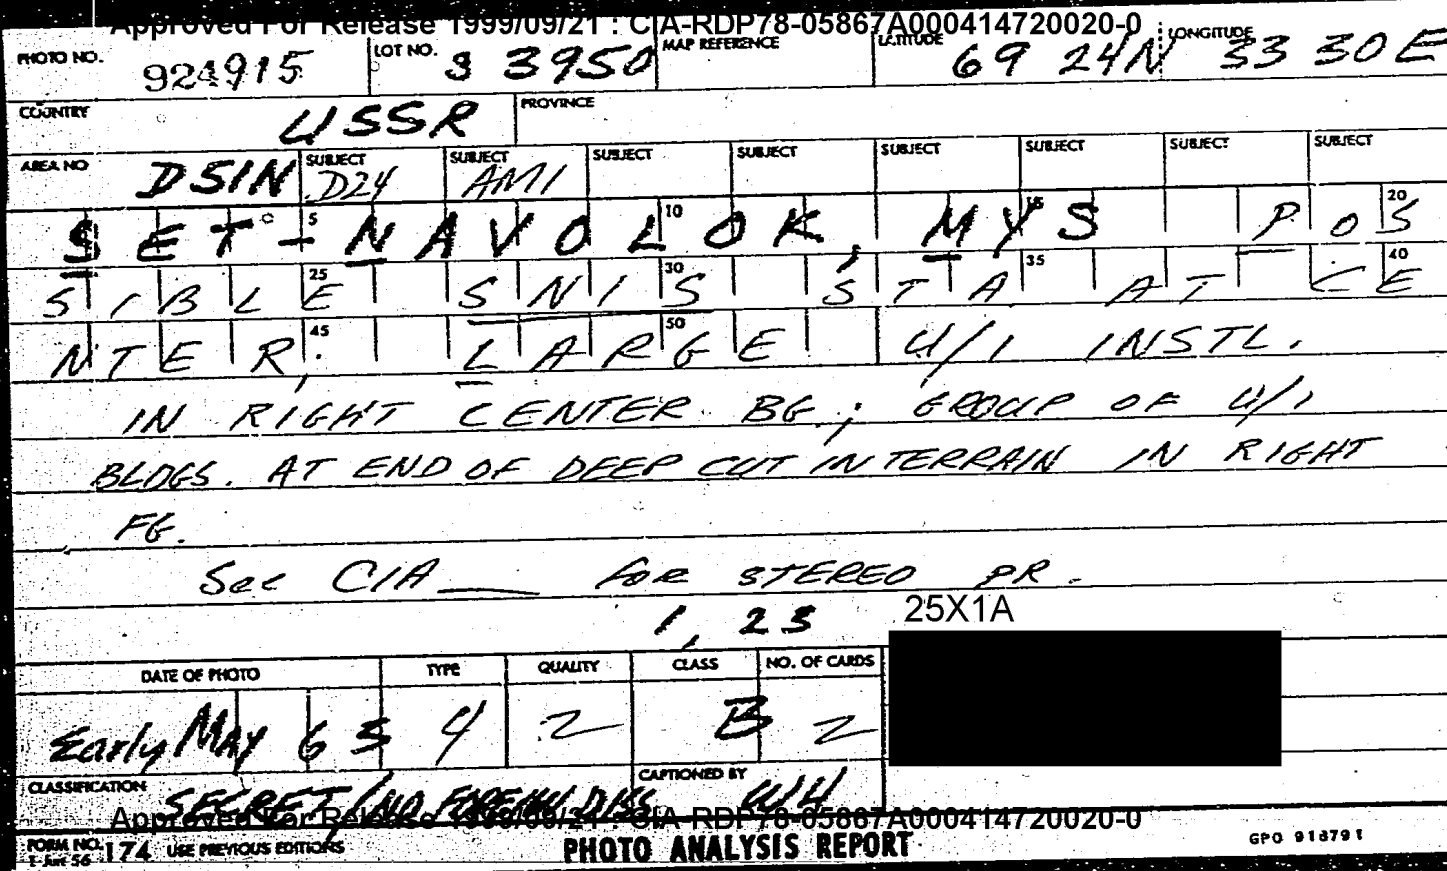 Approved For Release 1999/09/21 : CIA-RDP78-05867A000414720020-0
PHOTO NO. 924915 LOT NO. S 3950 MAP REFERENCE LATITUDE 69 24N LONGITUDE 33 30 E
COUNTRY USSR PROVINCE
AREA NO DSIN SUBJECT D24 SUBJECT AM1 SUBJECT SUBJECT SUBJECT SUBJECT SUBJECT SUBJECT
5 10 15 20
SET-NAVOLOK, MYS POS
25 30 35 40
SIBLE SNIS STA AT CE
45 50
NTER; LARGE U/I INSTL.
IN RIGHT CENTER BG; GROUP OF U/I
BLDGS. AT END OF DEEP CUT IN TERRAIN IN RIGHT
FG.
See CIA ____ for STEREO PR.
1, 23 25X1A
DATE OF PHOTO TYPE QUALITY CLASS NO. OF CARDS
Early MAY 63 4 2 B 2
CLASSIFICATION SECRET/NO FOREIGN DISS CAPTIONED BY
Approved For Release 1999/09/21 : CIA-RDP78-05867A000414720020-0
FORM NO. 174 USE PREVIOUS EDITIONS PHOTO ANALYSIS REPORT GPO 918791
1 Jul 56